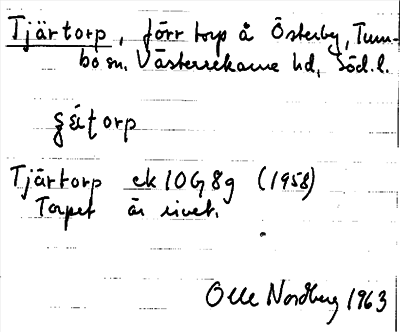 Tjärtorp, förr torp å Österby, Tum-
bo sn. Västerrekarne hd, Söd.l.
torp
Tjärtorp ek 10G 8g (1958)
Torpet är rivet.
Olle Nordberg 1963